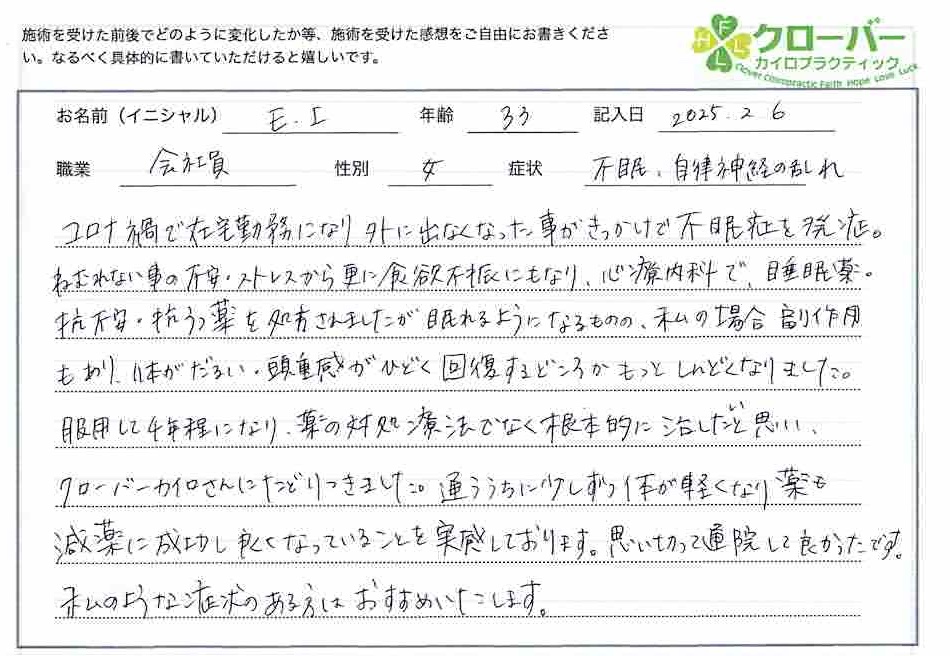 施術を受けた前後でどのように変化したか等、施術を受けた感想をご自由にお書きくださ
い。なるべく具体的に書いていただけると嬉しいです。
H F L L
クローバー
カイロプラクティック
Clover Chiropractic Faith Hope Love Luck
お名前（イニシャル） E.I 年齢 33 記入日 2025.2 6
職業 会社員 性別 女 症状 不眠、自律神経の乱れ
コロナ禍で在宅勤務になり外に出なくなった事がきっかけで不眠症を発症。
ねむれない事の不安・ストレスから更に食欲不振にもなり、心療内科で、睡眠薬。
抗不安・抗うつ薬を処方されましたが眠れるようになるものの、私の場合副作用
もあり、体がだるい・頭重感がひどく回復するどころかもっとしんどくなりました。
服用して4年程になり、薬の対処療法でなく根本的に治したいと思い、
クローバーカイロさんにたどりつきました。通ううちに少しずつ体が軽くなり薬も
減薬に成功し良くなっていることを実感しております。思い切って通院して良かったです。
私のような症状のある方はおすすめいたします。